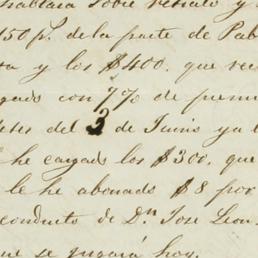 hablara sobre retrato y
150 ps. de la parte de Pab
ta y los $400. que rec
gado con 7% de premi
etes del 3 de Junio ya l
he cargado los $300. que
le he abonado $8 por
conducto de Dn Jose Leon
que se jugará hoy.